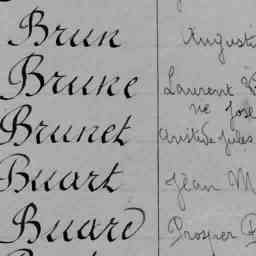 Brun August
Brune Laurent
né José
Brunet Aristide Jules
Buart Jean M
Buard Prosper